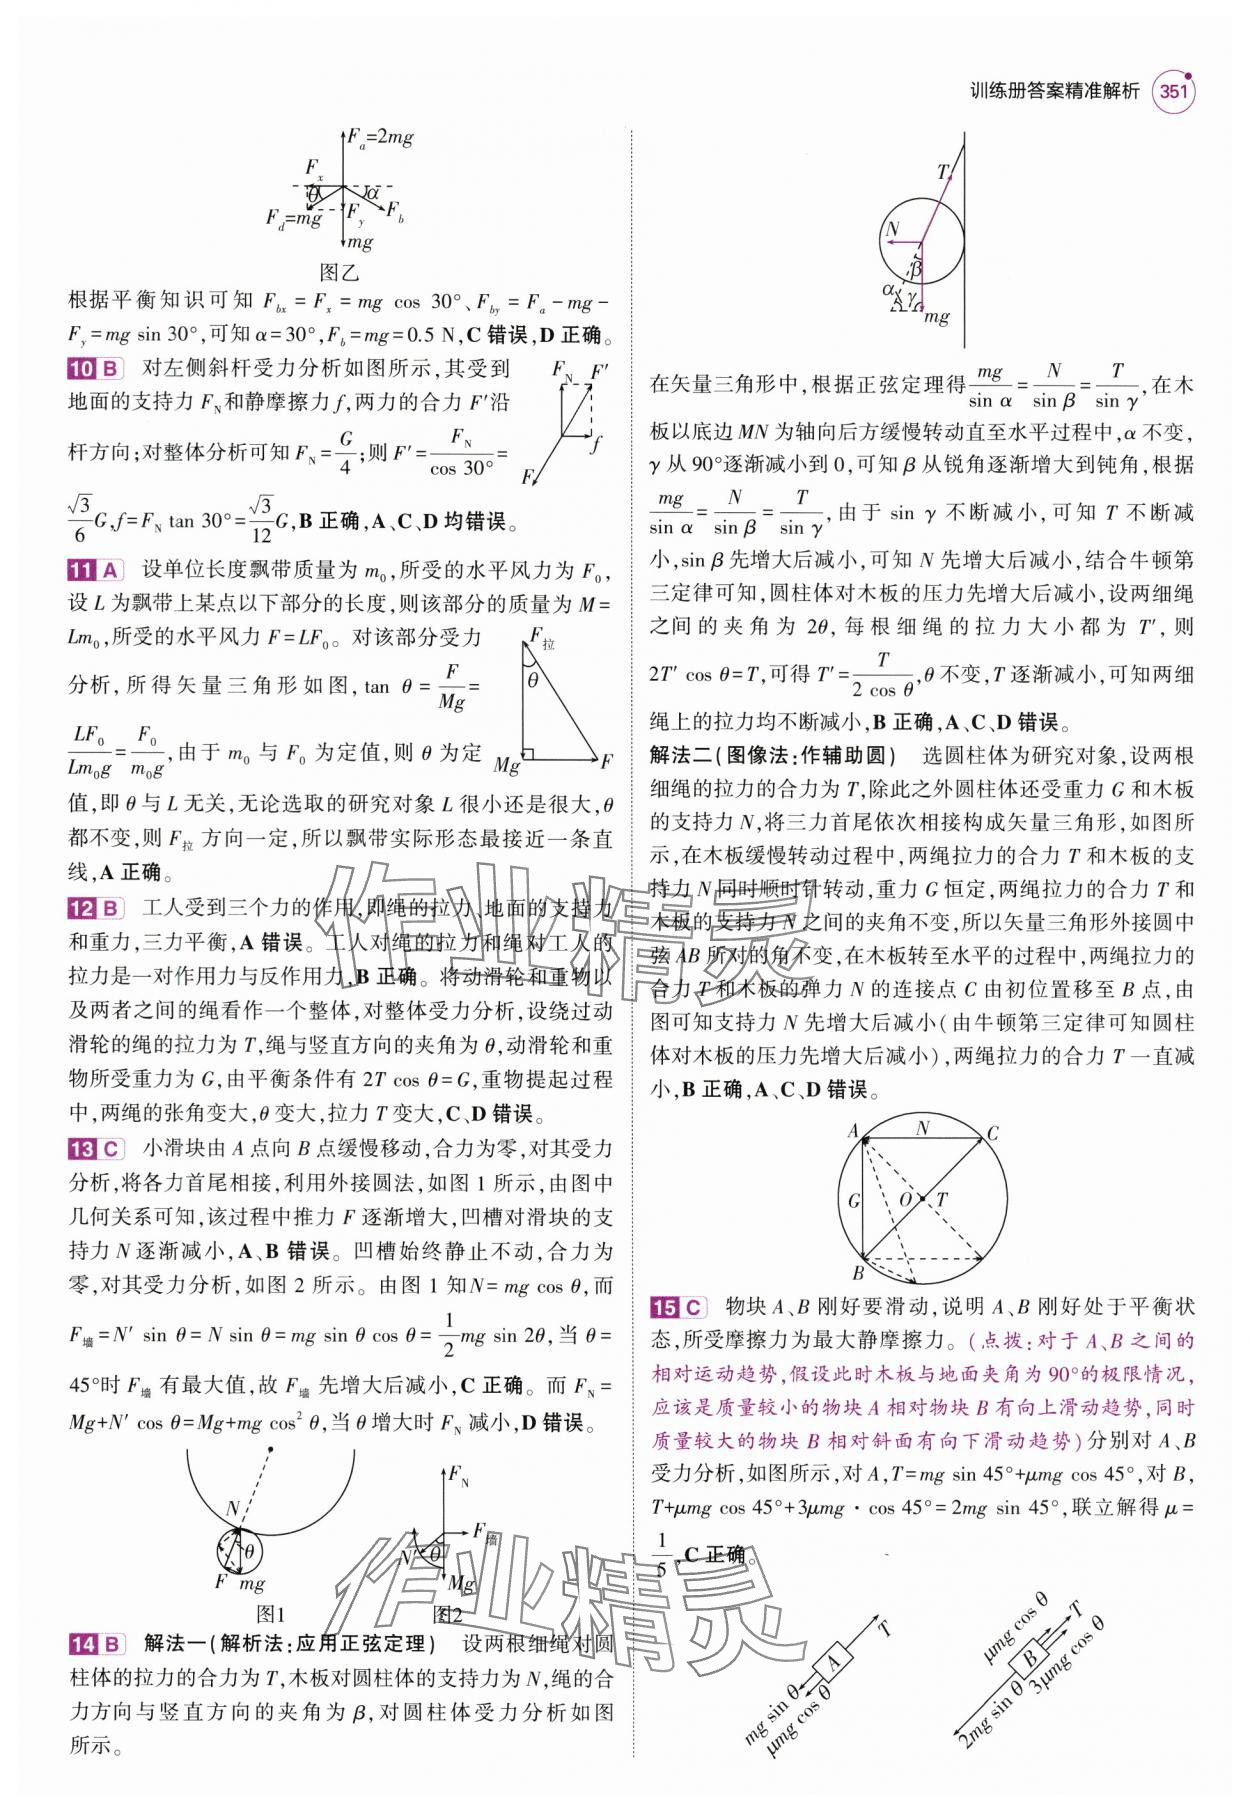 训练册答案精准解析 351
F_a=2mg
F_x
θ α
F_d=mg F_y F_b
mg
图乙
根据平衡知识可知 F_bx = F_x = mg cos 30°、F_by = F_a - mg -
F_y = mg sin 30°,可知 α=30°,F_b=mg=0.5 N,C 错误,D 正确。
10 B 对左侧斜杆受力分析如图所示,其受到
地面的支持力 F_N和静摩擦力 f,两力的合力 F′沿
杆方向;对整体分析可知 F_N=G/4;则 F′=F_N/cos 30°=
√3/6 G,f=F_N tan 30°=√3/12 G,B 正确,A、C、D 均错误。
F_N F′
f
F
11 A 设单位长度飘带质量为 m_0,所受的水平风力为 F_0,
设 L 为飘带上某点以下部分的长度,则该部分的质量为 M=
Lm_0,所受的水平风力 F=LF_0。对该部分受力
分析,所得矢量三角形如图,tan θ=F/Mg=
LF_0/Lm_0g=F_0/m_0g,由于 m_0 与 F_0 为定值,则 θ 为定
F_拉
θ
Mg F
值,即 θ 与 L 无关,无论选取的研究对象 L 很小还是很大,θ
都不变,则 F_拉 方向一定,所以飘带实际形态最接近一条直
线,A 正确。
12 B 工人受到三个力的作用,即绳的拉力、地面的支持力
和重力,三力平衡,A 错误。工人对绳的拉力和绳对工人的
拉力是一对作用力与反作用力,B 正确。将动滑轮和重物以
及两者之间的绳看作一个整体,对整体受力分析,设绕过动
滑轮的绳的拉力为 T,绳与竖直方向的夹角为 θ,动滑轮和重
物所受重力为 G,由平衡条件有 2T cos θ=G,重物提起过程
中,两绳的张角变大,θ 变大,拉力 T 变大,C、D 错误。
13 C 小滑块由 A 点向 B 点缓慢移动,合力为零,对其受力
分析,将各力首尾相接,利用外接圆法,如图 1 所示,由图中
几何关系可知,该过程中推力 F 逐渐增大,凹槽对滑块的支
持力 N 逐渐减小,A、B 错误。凹槽始终静止不动,合力为
零,对其受力分析,如图 2 所示。由图 1 知N=mg cos θ,而
F_墙=N′ sin θ=N sin θ=mg sin θ cos θ=1/2 mg sin 2θ,当 θ=
45°时 F_墙 有最大值,故 F_墙 先增大后减小,C 正确。而 F_N=
Mg+N′ cos θ=Mg+mg cos² θ,当 θ 增大时 F_N 减小,D 错误。
N θ
F mg
图1
F_N
F_墙
N′ θ
Mg
图2
14 B 解法一(解析法:应用正弦定理) 设两根细绳对圆
柱体的拉力的合力为 T,木板对圆柱体的支持力为 N,绳的合
力方向与竖直方向的夹角为 β,对圆柱体受力分析如图
所示。
T
N
β
α γ
mg
在矢量三角形中,根据正弦定理得mg/sin α=N/sin β=T/sin γ,在木
板以底边 MN 为轴向后方缓慢转动直至水平过程中,α 不变,
γ 从 90°逐渐减小到 0,可知 β 从锐角逐渐增大到钝角,根据
mg/sin α=N/sin β=T/sin γ,由于 sin γ 不断减小,可知 T 不断减
小,sin β 先增大后减小,可知 N 先增大后减小,结合牛顿第
三定律可知,圆柱体对木板的压力先增大后减小,设两细绳
之间的夹角为 2θ,每根细绳的拉力大小都为 T′,则
2T′ cos θ=T,可得 T′=T/2 cos θ,θ 不变,T 逐渐减小,可知两细
绳上的拉力均不断减小,B 正确,A、C、D 错误。
解法二(图像法:作辅助圆) 选圆柱体为研究对象,设两根
细绳的拉力的合力为 T,除此之外圆柱体还受重力 G 和木板
的支持力 N,将三力首尾依次相接构成矢量三角形,如图所
示,在木板缓慢转动过程中,两绳拉力的合力 T 和木板的支
持力 N 同时顺时针转动,重力 G 恒定,两绳拉力的合力 T 和
木板的支持力 N 之间的夹角不变,所以矢量三角形外接圆中
弦 AB 所对的角不变,在木板转至水平的过程中,两绳拉力的
合力 T 和木板的弹力 N 的连接点 C 由初位置移至 B 点,由
图可知支持力 N 先增大后减小(由牛顿第三定律可知圆柱
体对木板的压力先增大后减小),两绳拉力的合力 T 一直减
小,B 正确,A、C、D 错误。
A N C
G O T
B
15 C 物块 A、B 刚好要滑动,说明 A、B 刚好处于平衡状
态,所受摩擦力为最大静摩擦力。(点拨:对于 A、B 之间的
相对运动趋势,假设此时木板与地面夹角为 90°的极限情况,
应该是质量较小的物块 A 相对物块 B 有向上滑动趋势,同时
质量较大的物块 B 相对斜面有向下滑动趋势)分别对 A、B
受力分析,如图所示,对 A,T=mg sin 45°+μmg cos 45°,对 B,
T+μmg cos 45°+3μmg·cos 45°=2mg sin 45°,联立解得 μ=
1/5,C 正确。
T
A
mg sin θ
μmg cos θ
μmg cos θ T
B
3μmg cos θ
2mg sin θ
作业精灵
作业精灵